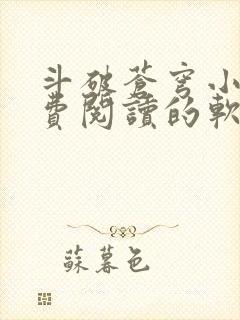 斗破蒼穹小
費閱讀的軟
蘇暮色